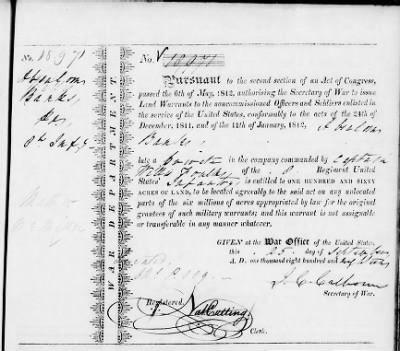 No. 18971
Absalom
Banks
8th Inf.y
WAR DEPARTMENT
No. 18971
Pursuant to the second section of an Act of Congress,
passed the 6th of May, 1812, authorising the Secretary of War to issue
Land Warrants to the noncommissioned Officers and Soldiers enlisted in
the service of the United States, conformably to the acts of the 24th of
December, 1811, and of the 11th of January, 1812, Absalom
Banks
late a private in the company commanded by Captain
of the 8 Regiment United
States Infantry is entitled to ONE HUNDRED AND SIXTY
ACRES OF LAND, to be located agreeably to the said act on any unlocated
parts of the six millions of acres appropriated by law for the original
grantees of such military warrants; and this warrant is not assignable
or transferable in any manner whatever.
GIVEN at the War Office of the United States,
this 25 day of September
A. D. one thousand eight hundred and
J. C. Calhoun
Secretary of War.
Registered,
Nat Cutting
Clerk.